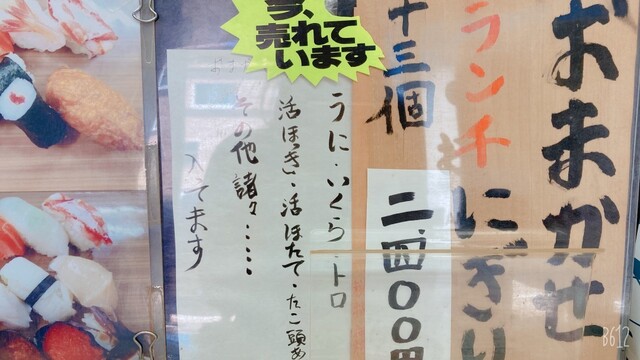 おまかせ
ランチにぎり
十三個
二、四〇〇円
今、
売れて
います
うに・いくら・トロ
活ほっき・活ほたて・たこ頭
その他諸々・・・・・
入てます
B612